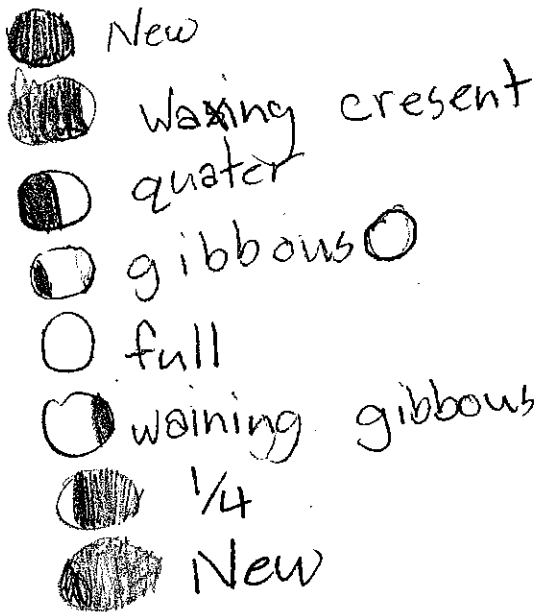 New
waxing cresent
quater
gibbous
full
waining gibbous
1/4
New